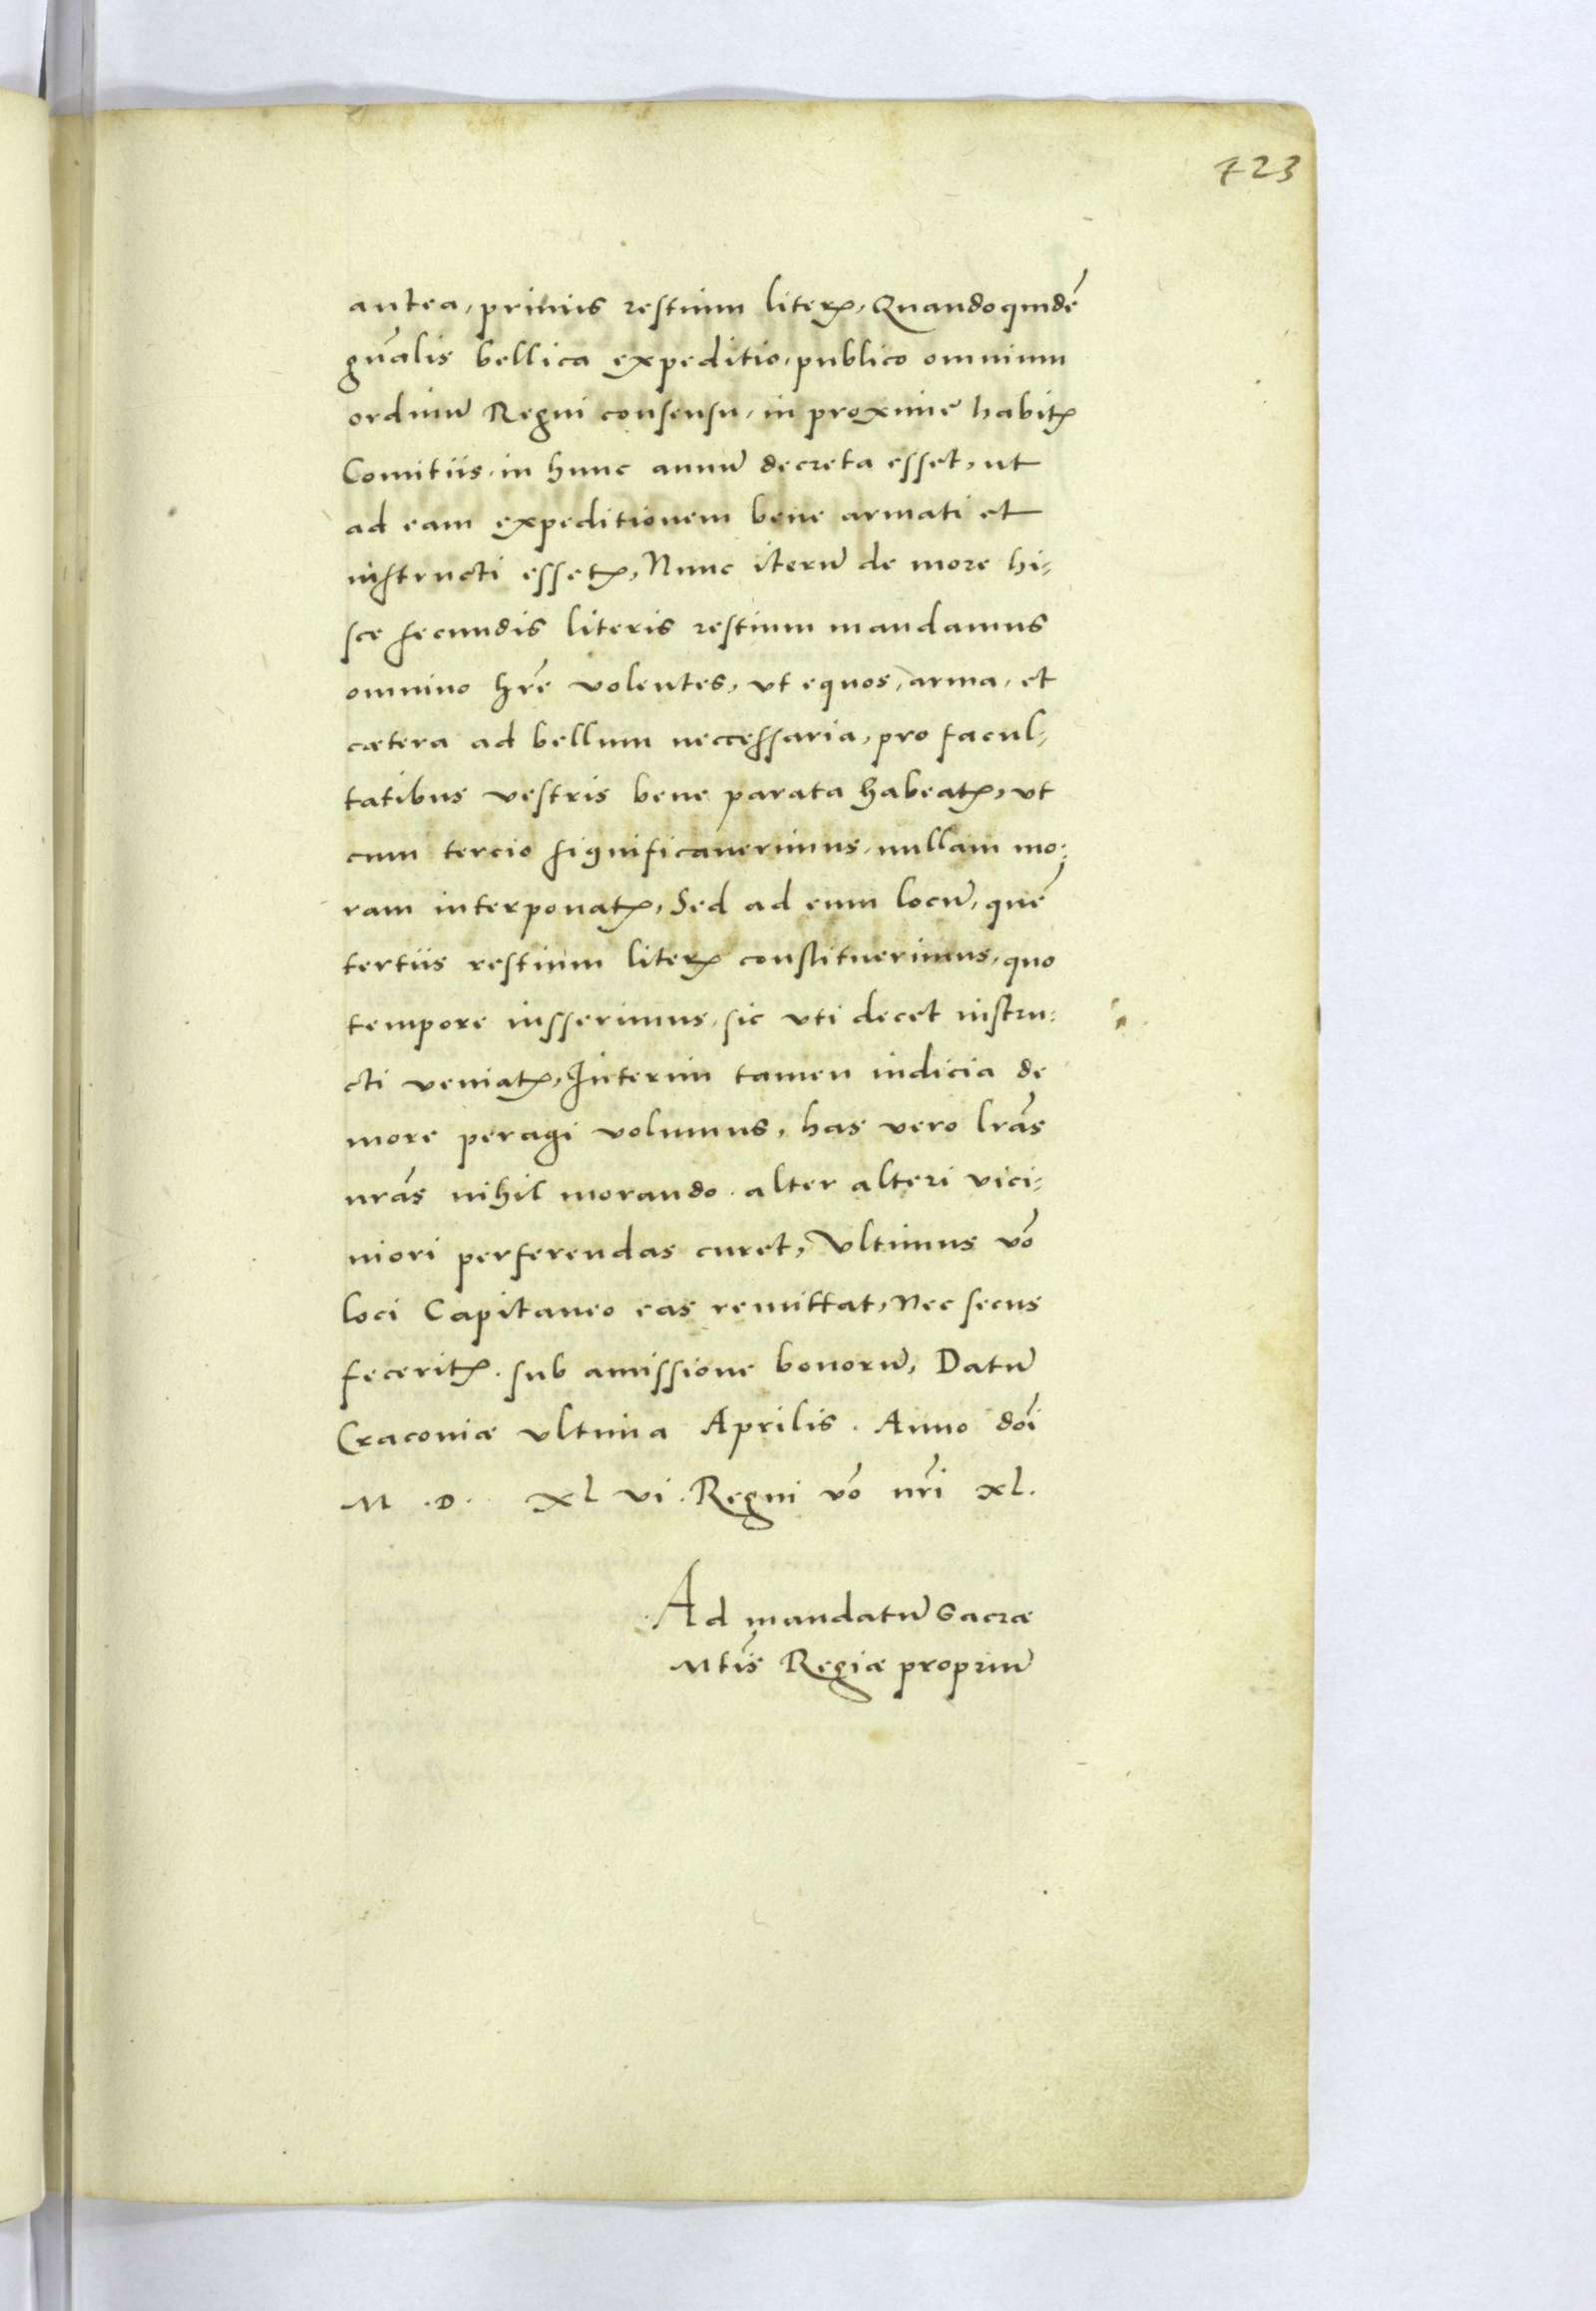 423
antea, primis restium literꝭ, Quandoquidē
gñalis bellica expeditio, publico omnium
ordinū Regni consensu, in proxime habitꝭ
Comitiis, in hunc annū decreta esset, ut
ad eam expeditionem bene armati et
instructi essetꝭ, Nunc iterū de more hi-
sce secundis literis restium mandamus
omnino hr̃e volentes, vt equos, arma, et
cætera ad bellum neccessaria, pro facul-
tatibus vestris bene parata habeatꝭ, vt
cum tercio significauerimus, nullam mo-
ram interponatꝭ, Sed ad eum locū, quē
tertiis restium literꝭ constituerimus, quo
tempore iusserimus, sic vti decet instru-
cti veniatꝭ, Interim tamen iudicia de
more peragi volumus, has vero lr̃as
nr̃as nihil morando alter alteri vici-
niori perferendas curet, Vltimus vo͂
loci Capitaneo eas remittat, Nec secus
feceritꝭ. sub amissione bonorū, Datū
Cracouiæ vltima Aprilis. Anno dn̄i
M .D. Xl vi. Regni vo͂ nr̃i xl.
Ad mandatū Sacræ
Mtis̃ Regiæ propriū